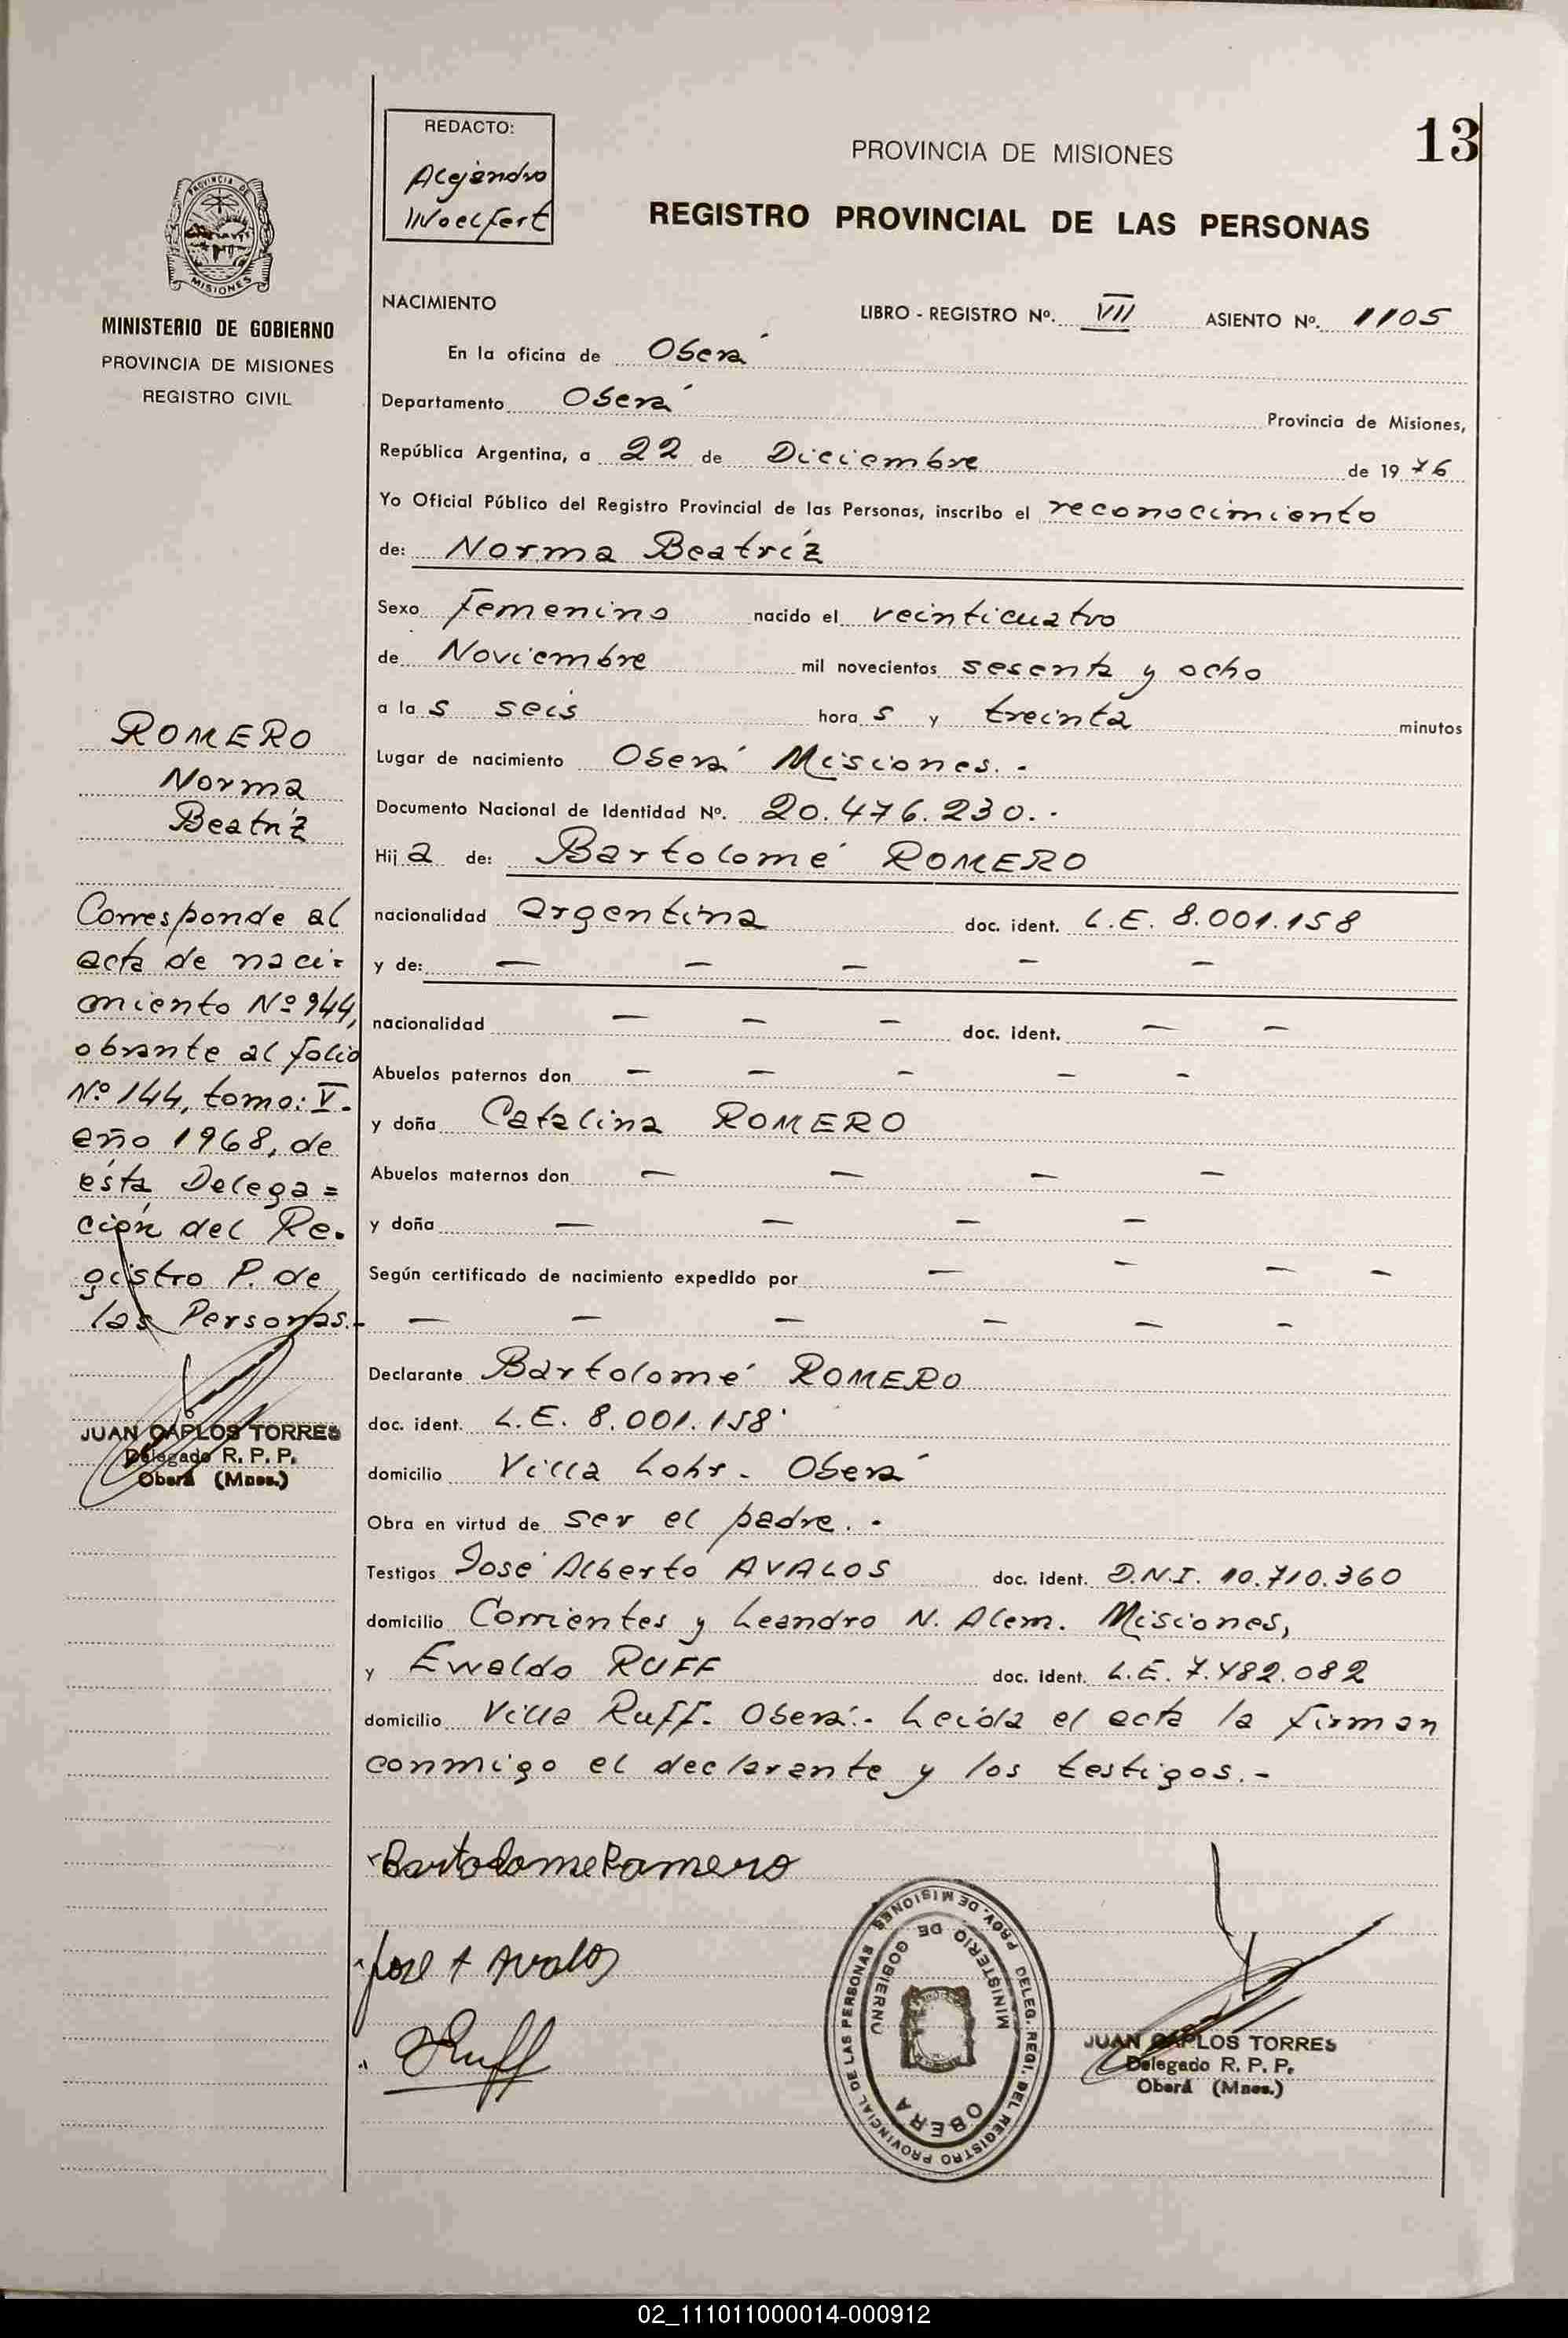 13
REDACTO:
Alejandro
Woelfert
PROVINCIA DE MISIONES
REGISTRO PROVINCIAL DE LAS PERSONAS
PROVINCIA DE
MISIONES
MINISTERIO DE GOBIERNO
PROVINCIA DE MISIONES
REGISTRO CIVIL
NACIMIENTO LIBRO - REGISTRO Nº. VII ASIENTO Nº. 1105
En la oficina de Oberá
Departamento Oberá Provincia de Misiones,
República Argentina, a 22 de Diciembre de 1976
Yo Oficial Público del Registro Provincial de las Personas, inscribo el reconocimiento
de: Norma Beatríz
Sexo Femenino nacido el veinticuatro
de Noviembre mil novecientos sesenta y ocho
a las seis horas y treinta minutos
Lugar de nacimiento Oberá Misiones.-
Documento Nacional de Identidad Nº. 20.476.230.-
Hija de: Bartolomé ROMERO
nacionalidad argentina doc. ident. L.E. 8.001.158
y de: — — — — —
nacionalidad — — — doc. ident. — —
Abuelos paternos don — — — — —
y doña Catalina ROMERO
Abuelos maternos don — — — —
y doña — — — —
Según certificado de nacimiento expedido por — — — —
— — — — — —
Declarante Bartolomé ROMERO
doc. ident. L.E. 8.001.158
domicilio Villa Lohr. Oberá
Obra en virtud de ser el padre.-
Testigos José Alberto AVALOS doc. ident. D.N.I. 10.710.360
domicilio Corrientes y Leandro N. Alem. Misiones,
y Ewaldo RUFF doc. ident. L.E. 7.482.082
domicilio Villa Ruff. Oberá.- Leída el acta la firman
conmigo el declarante y los testigos.-
ROMERO
Norma
Beatríz
Corresponde al
acta de naci=
miento Nº 944,
obrante al folio
Nº 144, tomo: V.
año 1968, de
ésta Delega=
ción del Re.
gistro P. de
las Personas.-
JUAN CARLOS TORRES
Delegado R. P. P.
Oberá (Mnes.)
Bartolome Romero
Jose A Avalos
Ruff
DELEG. REGI. DEL REGISTRO PROVINCIAL DE LAS PERSONAS
PROV. DE MISIONES
MINISTERIO DE GOBIERNO
OBERA
JUAN CARLOS TORRES
Delegado R. P. P.
Oberá (Mnes.)
02_111011000014-000912